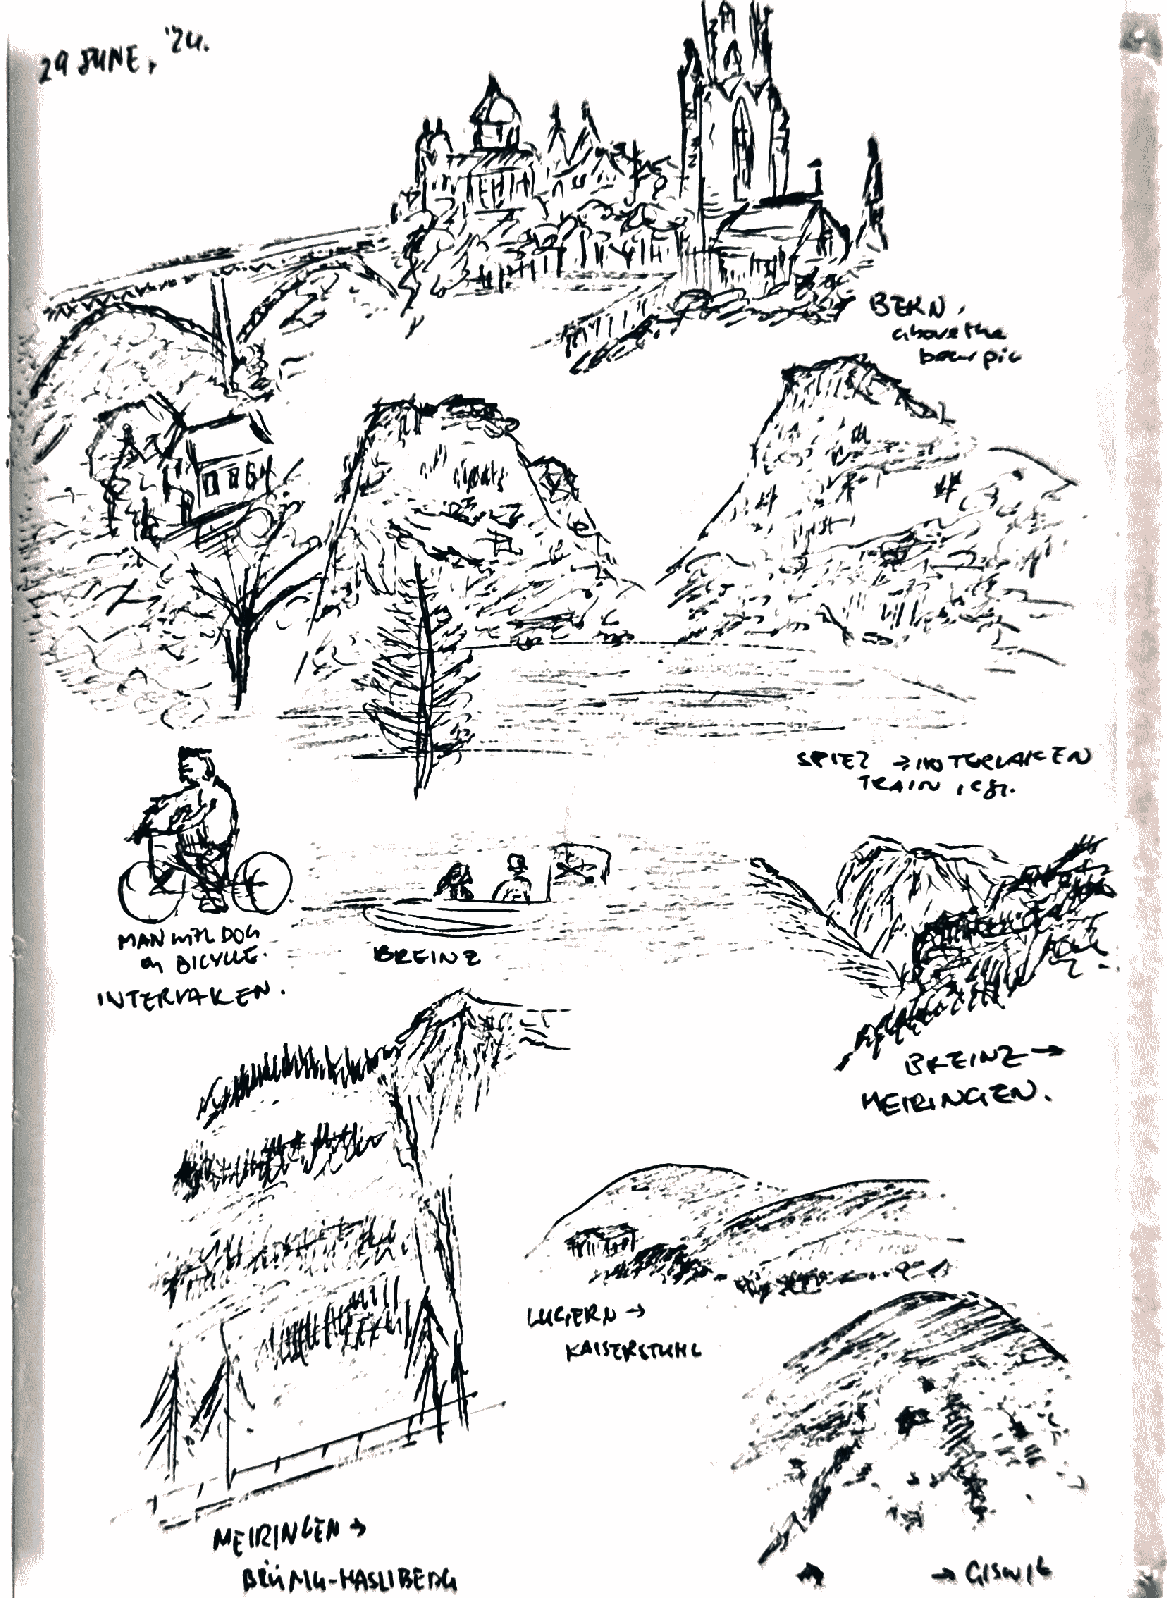 29 JUNE, '24.
BERN,
above the
bear pit
SPIEZ → INTERLAKEN
TRAIN
MAN WITH DOG
ON BICYCLE.
INTERLAKEN.
BREINZ
BREINZ →
MEIRINGEN.
LUCERN →
KAISERSTUHL
MEIRINGEN →
BRÜNIG-HASLIBERG
→ GISWIL